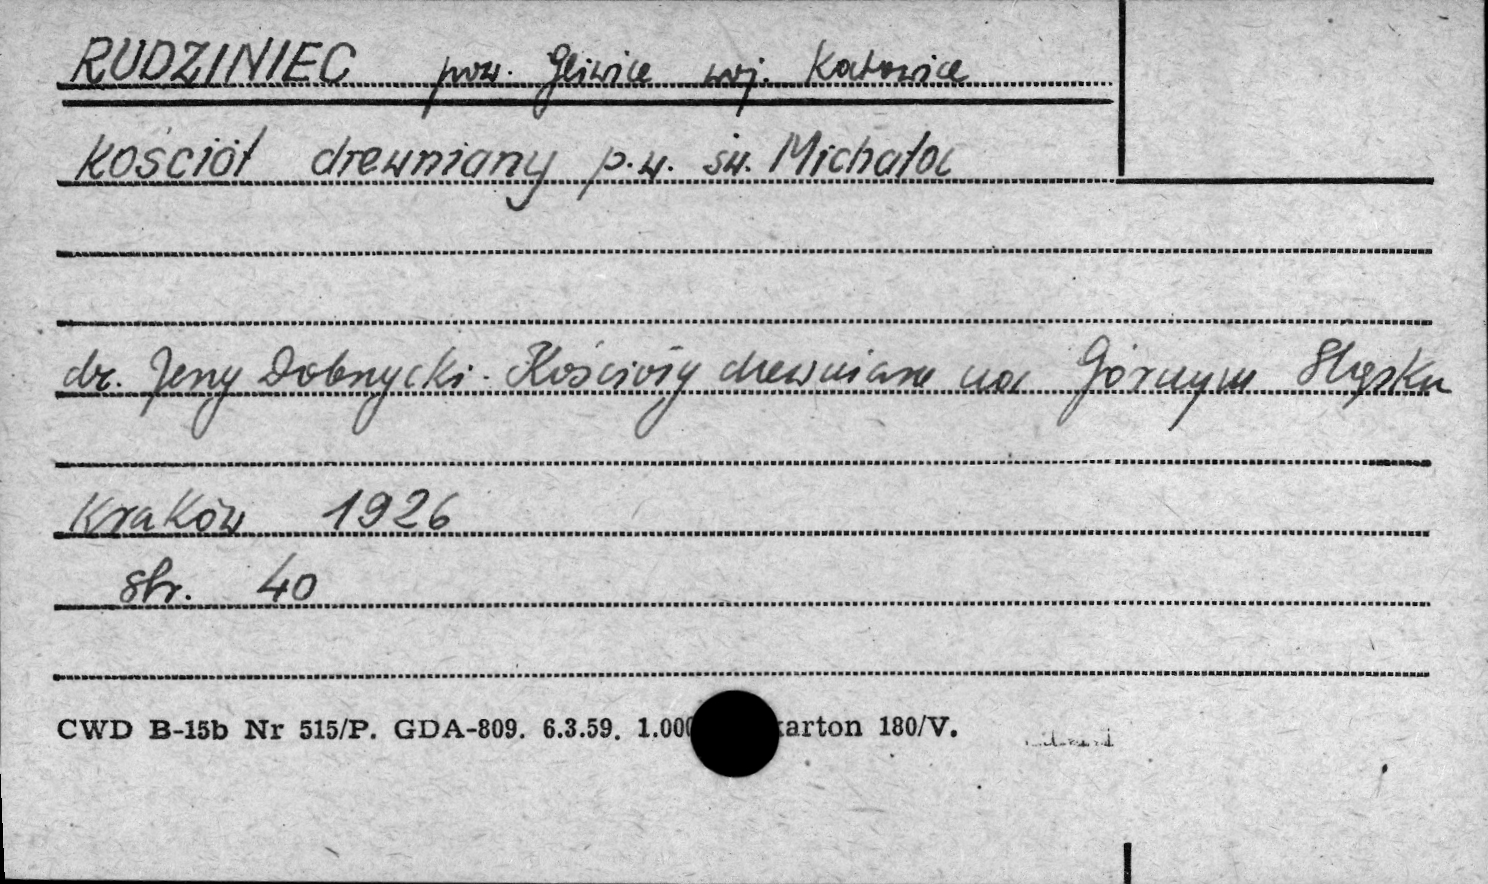 RUDZINIEC pow. Gliwice woj. Katowice
Kościół drewniany p.w. św. Michała
dr. Jerzy Dobrzycki. Kościoły drewniane na Górnym Śląsku
Kraków 1926
str. 40
CWD B-15b Nr 515/P. GDA-809. 6.3.59. 1.000 karton 180/V.